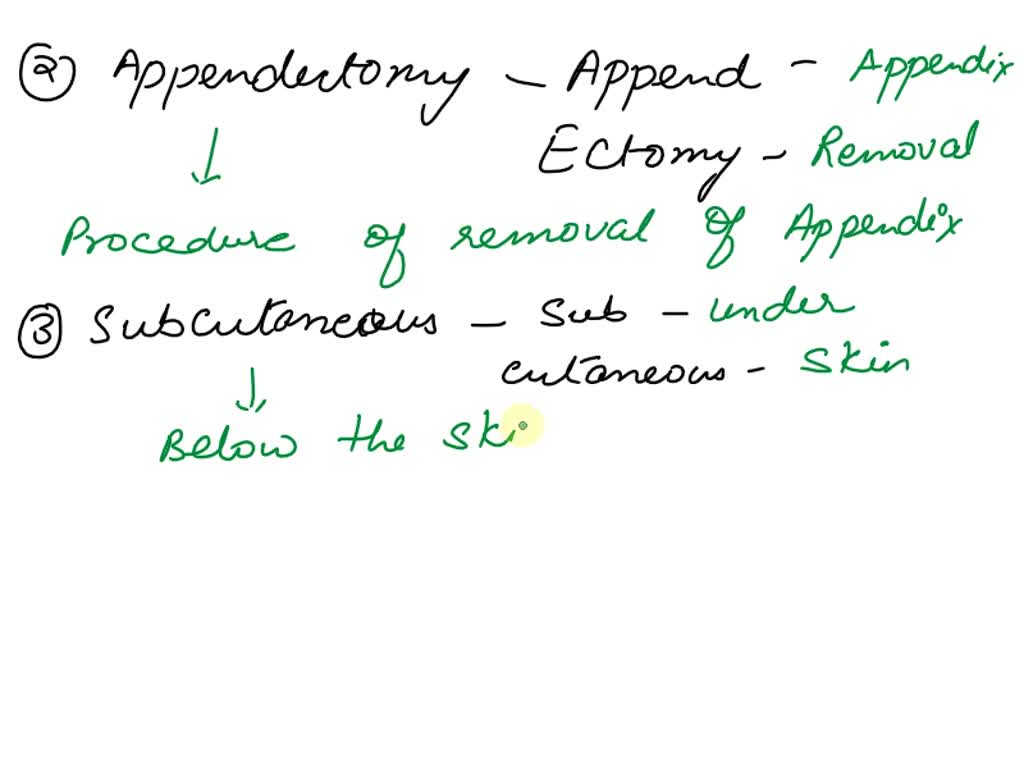 ② Appendectomy - Append - Appendix
Ectomy - Removal
Procedure of removal of Appendix
③ Subcutaneous - Sub - under
cutaneous - Skin
Below the ski